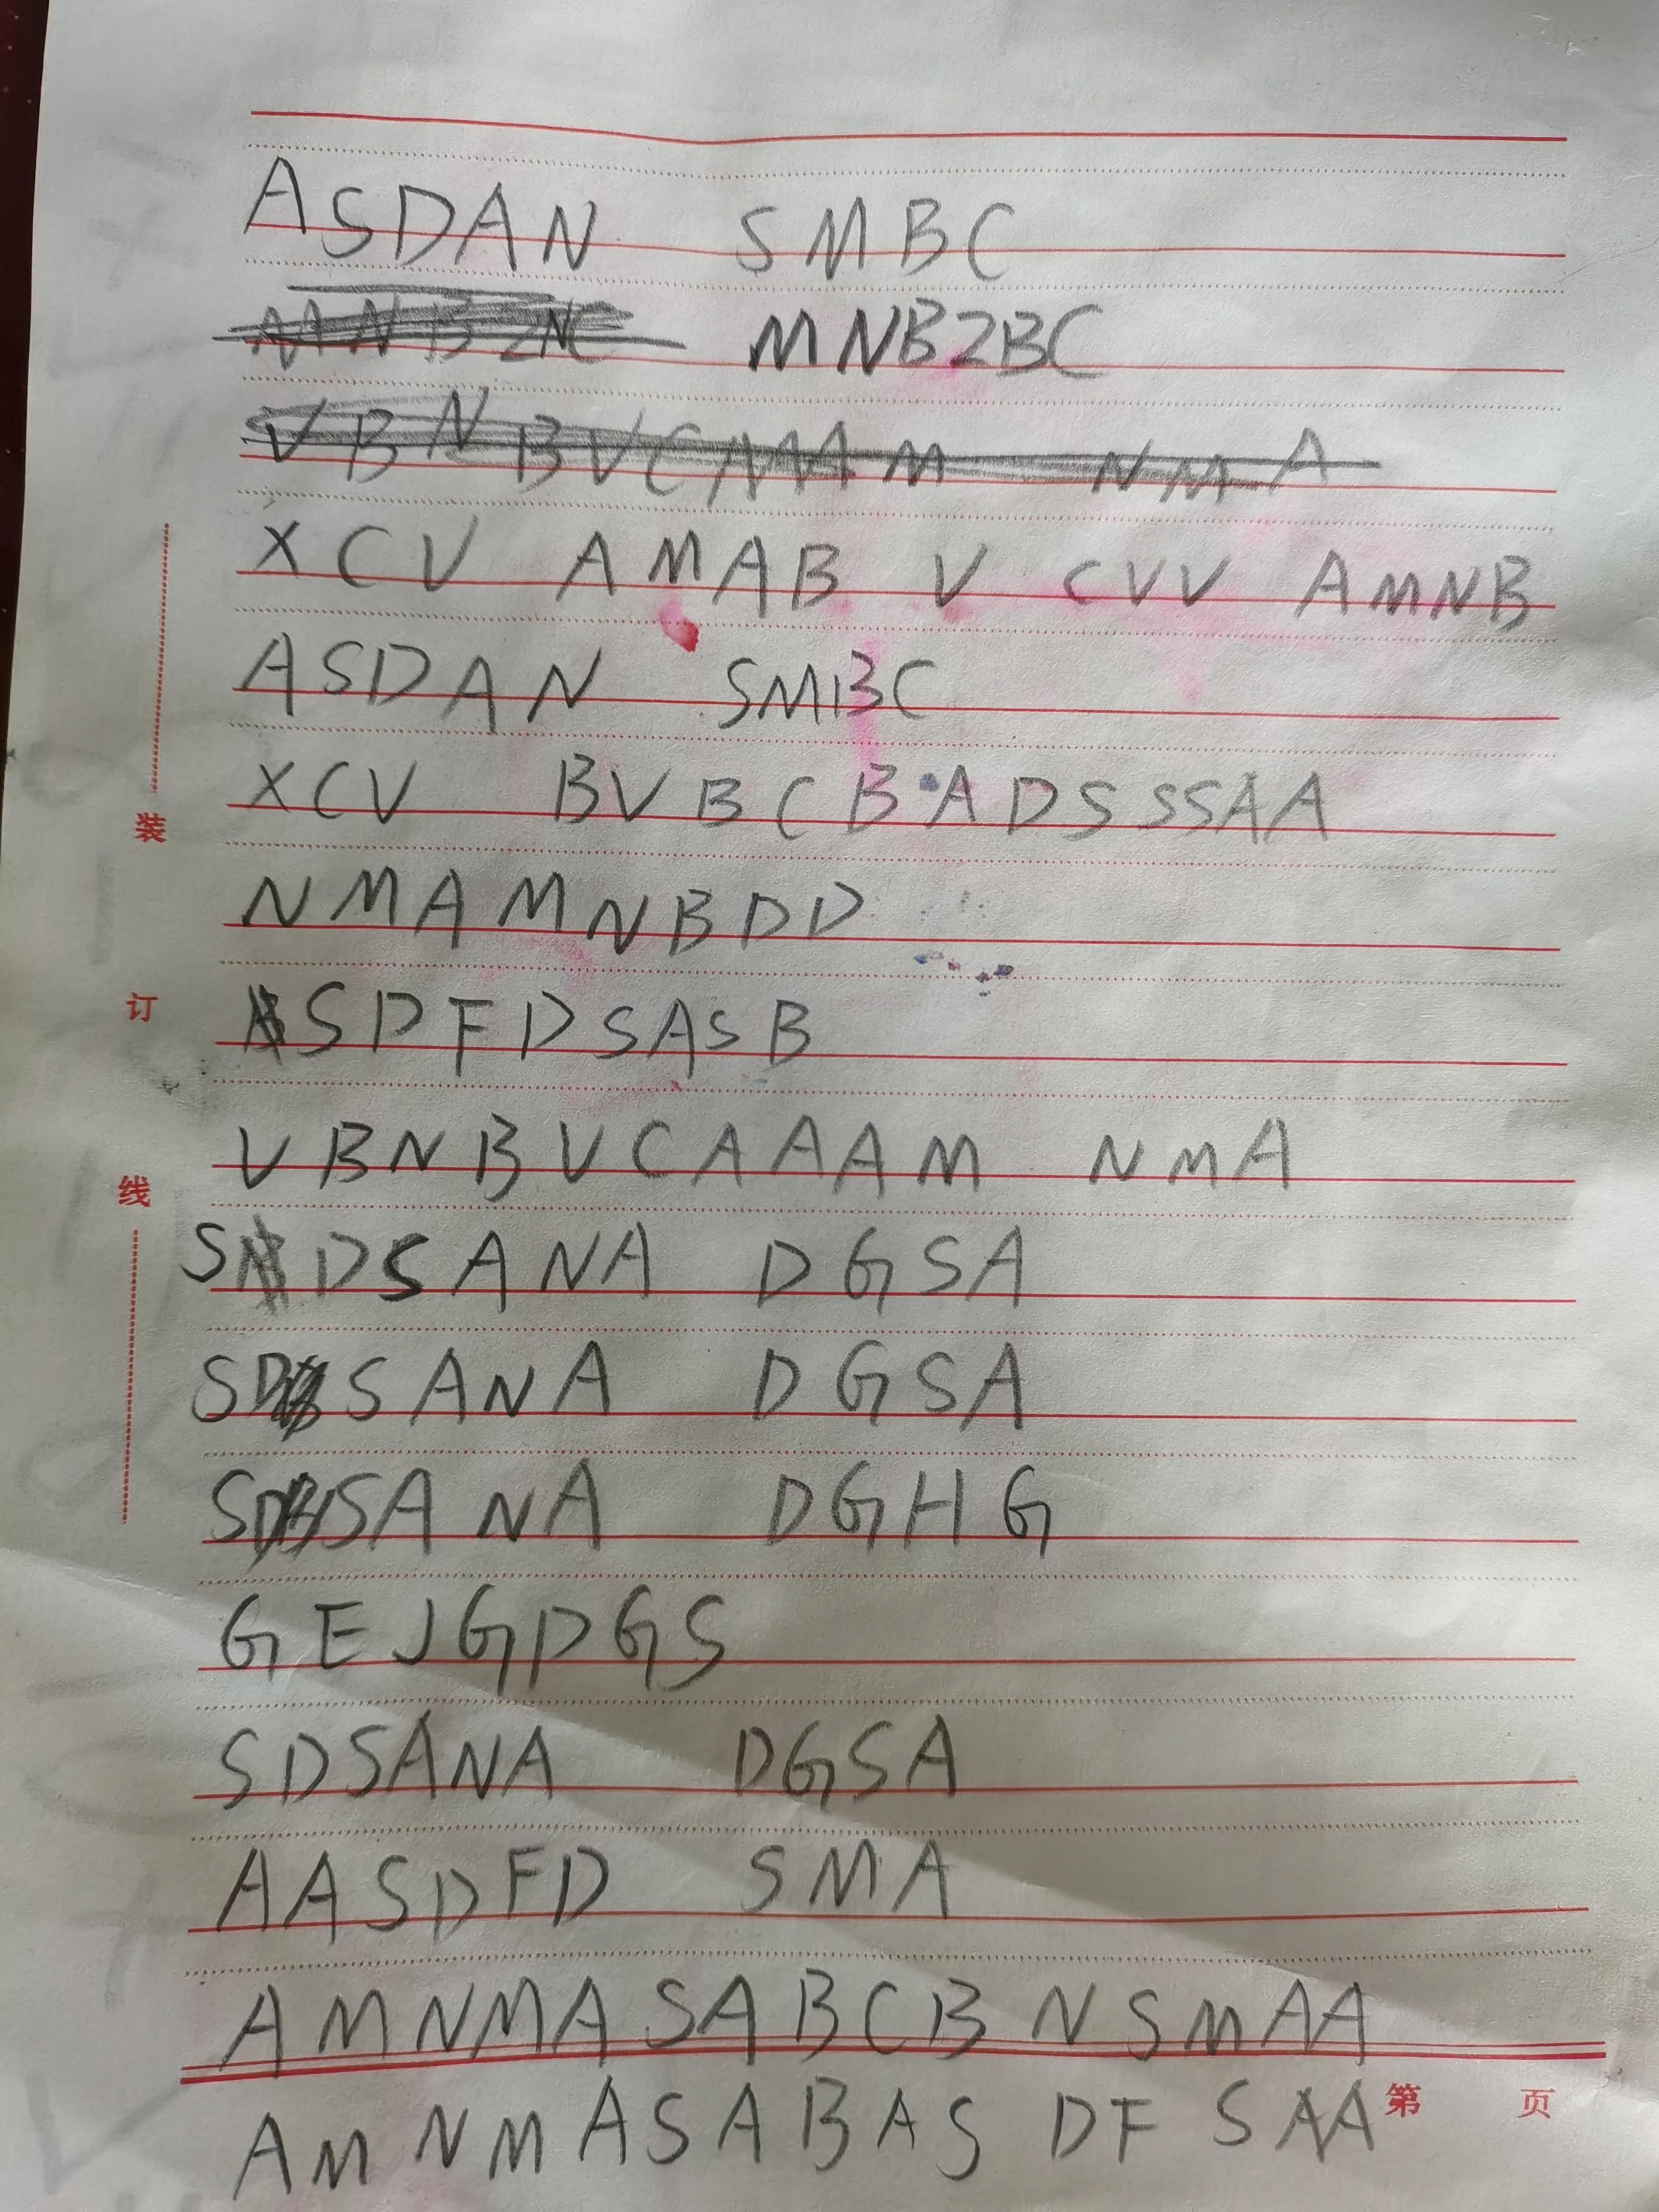 ASDAN SMBC
MNBZNC MNBZBC
VBNBVCAAAM NMA
XCV AMAB V CVV AMNB
ASDAN SMBC
XCV BVBCB ADSSSAA
NMAMNBDD
SDFDSASB
VBNBVCAAAM NMA
S DSANA DGSA
SD SANA DGSA
SD SANA DGHG
GEJGDGS
SDSANA DGSA
AASDFD SMA
AMNMASABCBNSMAA
AMNMASABAS DF SAA
装
订
线
第 页